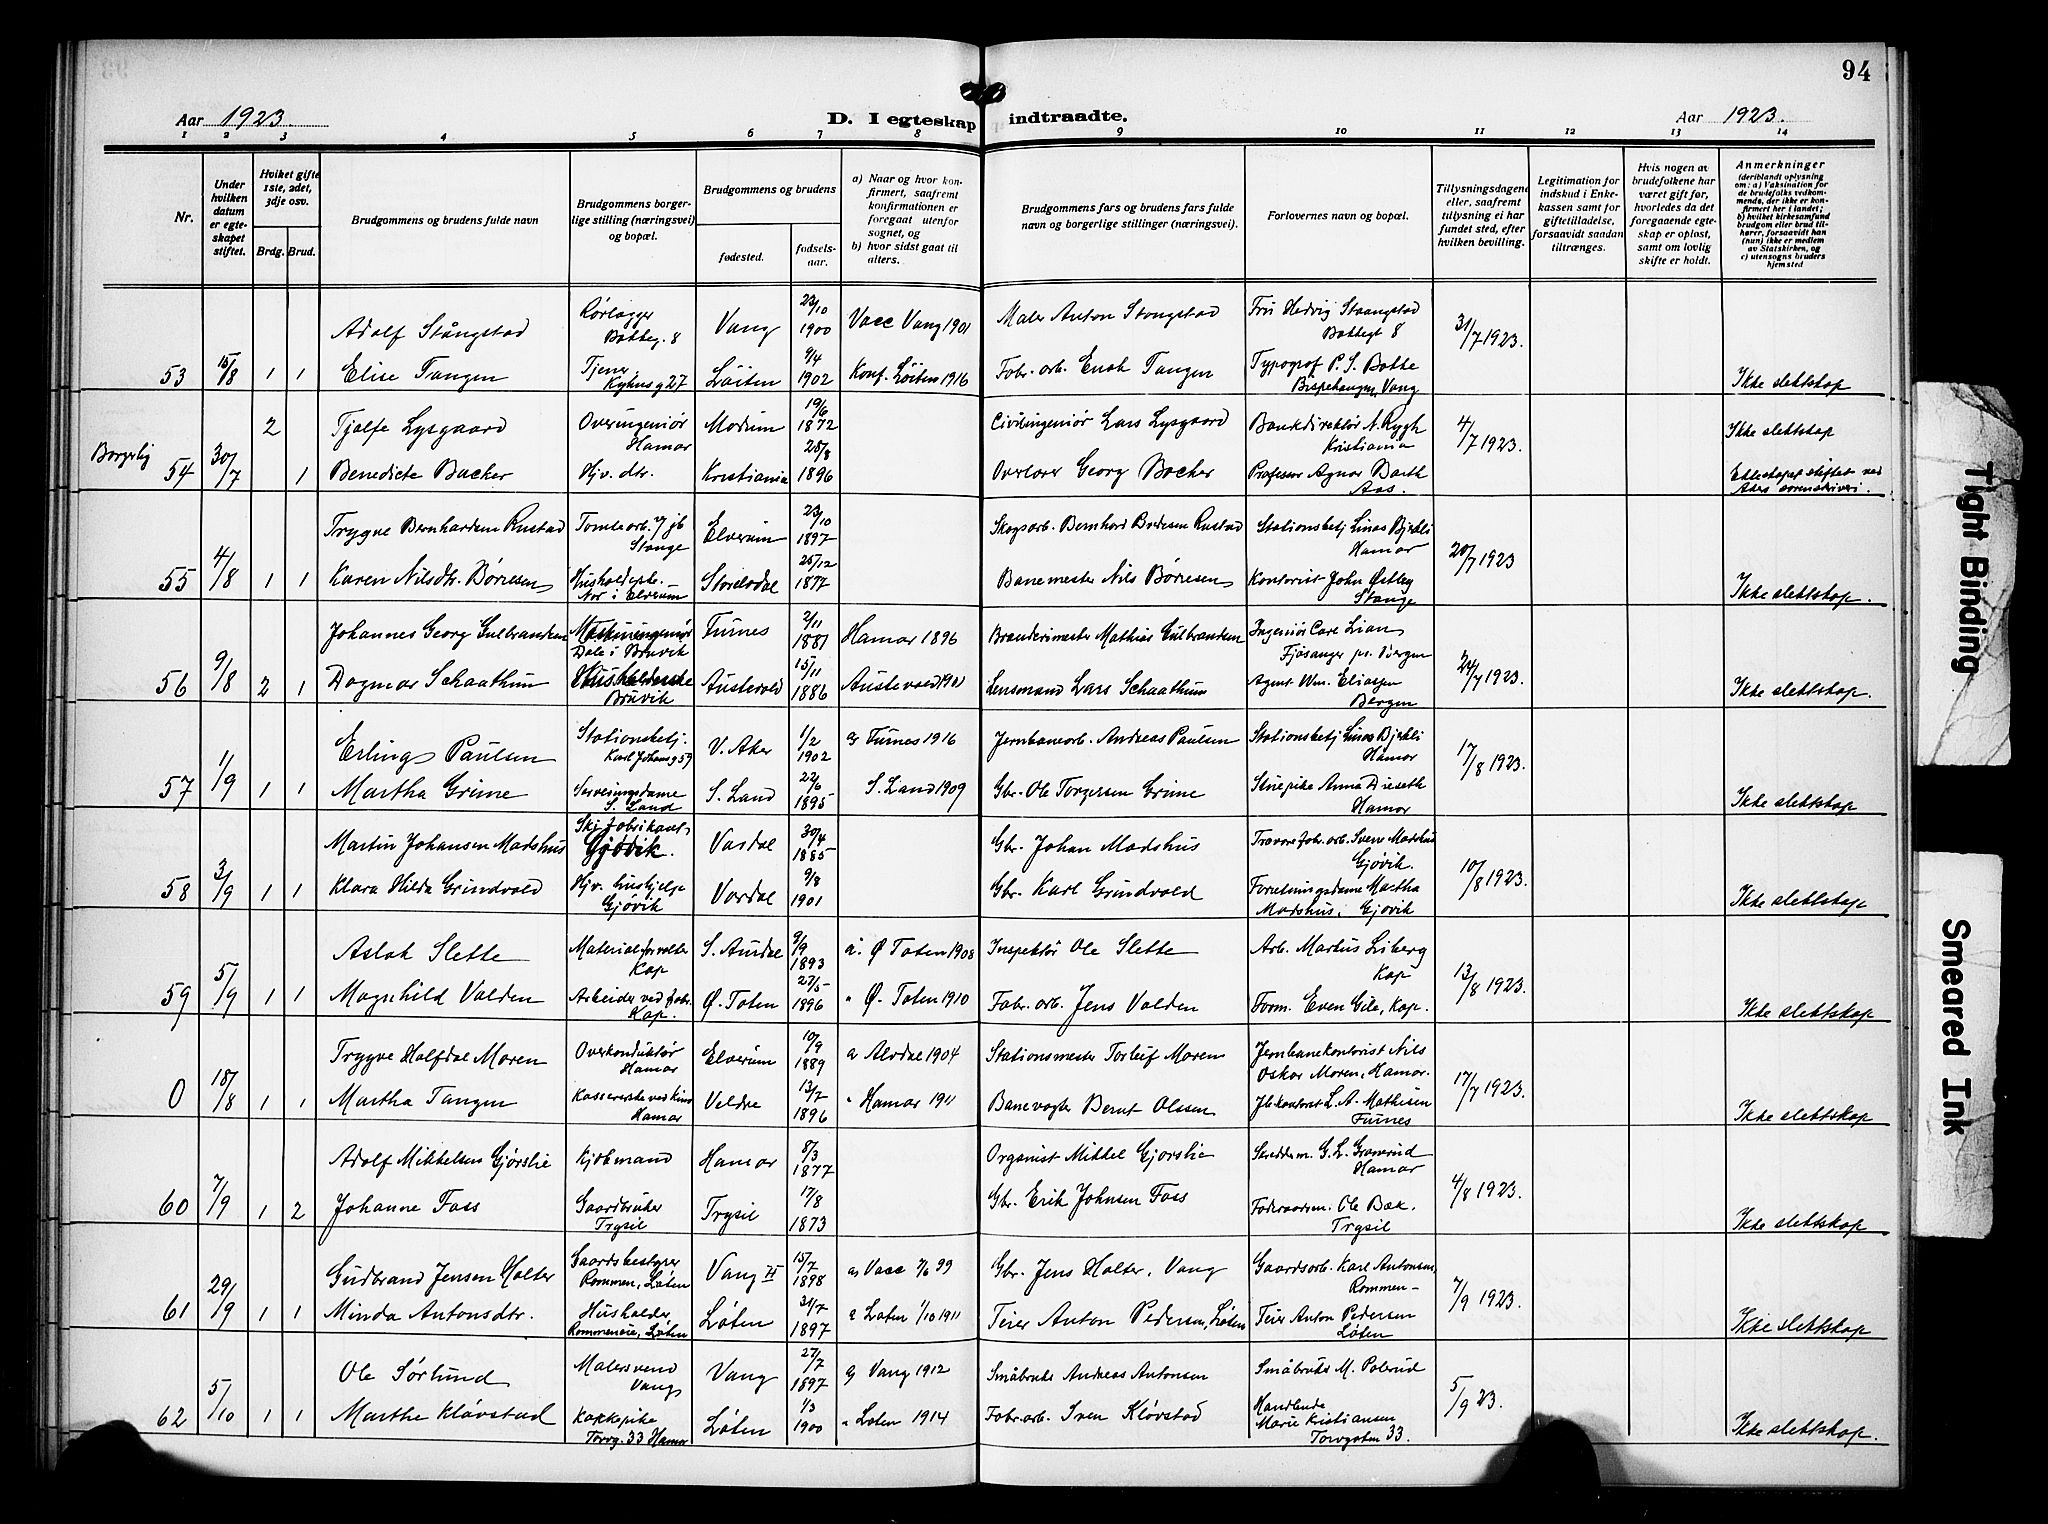 94
Aar 1923. D. I egteskap indtraadte. Aar 1923.
1 2 3 4 5 6 7 8 9 10 11 12 13 14
Nr.
Under hvilken datum er egteskapet stiftet.
Hvilket gifte 1ste, 2det, 3dje osv.
Brdg. Brud.
Brudgommens og brudens fulde navn
Brudgommens borgerlige stilling (næringsvei) og bopæl.
Brudgommens og brudens
fødested.
fødselsaar.
a) Naar og hvor konfirmert, saafremt konfirmationen er foregaat utenfor sognet, og
b) hvor sidst gaat til alters.
Brudgommens fars og brudens fars fulde navn og borgerlige stillinger (næringsvei).
Forlovernes navn og bopæl.
Tillysningsdagene eller, saafremt tillysning ei har fundet sted, efter hvilken bevilling.
Legitimation for indskud i Enkekassen samt for giftetilladelse, forsaavidt saadan tiltrænges.
Hvis nogen av brudefolkene har været gift før, hvorledes da det foregaaende egteskap er opløst, samt om lovlig skifte er holdt.
Anmerkninger (deriblandt oplysning om: a) Vaksination for de brudefolks vedkommende, der ikke er konfirmert her i landet; b) hvilket kirkesamfund brudgom eller brud tilhører, forsaavidt han (hun) ikke er medlem av Statskirken, og c) utensogns bruders hjemsted
Adolf Stångstad Rørlægger Bakkeg. 8 Vang 23/10 1900 Vacc Vang 1901 Maler Anton Stongstad Fru Hedvig Staangstad Bakkegt 8 31/7 1923.
53 15/8 1 1 Elise Tangen Tjener Kyhns g 27 Løiten 9/4 1902 Konf. Løiten 1916 Fabr. arb. Enok Tangen Typograf P. S. Bakke Bispehaugen, Vang Ikke slektskap
2 Tjalfe Lysgaard Overingeniør Hamar Modum 19/6 1872 Civilingeniør Lars Lysgaard Bankdirektør N. Rygh Kristiania 4/7 1923. Ikke slektskap
Borgerlig 54 30/7 1 Benedicte Backer Hjv. dtr. Kristiania 28/8 1896 Overlærer Georg Backer Professor Agnar Barth Aas. Ekteskapet stiftet ved Akers sorenskriveri.
Trygve Bernhardsen Rustad Tomtearb. v/ jb Stange Elverum 23/10 1897 Skogsarb. Bernhard Rustad Stationsbetj Linas Bjekli Hamar 20/7 1923
55 4/8 1 1 Karen Nilsdtr. Børresen Husholderske. Nor i Elverum Storelvdal 25/12 1877 Banemester Nils Børresen Kontorist John Østby Stange Ikke slektskap.
Johannes Georg Gulbrandsen Maskiningeniør Dale i Bruvik Furnes 2/11 1881 Hamar 1896 Brandermester Mathias Gulbrandsen Ingeniør Care Lian Fjøsanger pr. Bergen 24/7 1923.
56 9/8 2 1 Dagmar Schaathun Husholderske Bruvik Austevold 15/11 1886 Austevold 1911 Lensmand Lars Schaathun Agent Wm. Eliassen Bergen Ikke slektskap.
Erling Paulsen Stationsbetj. Karl Johansg 59 V. Aker 1/2 1902 a) Furnes 1916 Jernbanearb. Andreas Paulsen Stationsbetj Linas Bjekli Hamar 17/8 1923.
57 1/9 1 1 Martha Grime Serveringsdame S. Land S. Land 22/6 1895 S. Land 1909 Gbr. Ole Torgersen Grime Stuepike Anna Dieseth Hamar Ikke slektskap
Martin Johansen Madshus Skifabrikant, Gjøvik. Vardal 30/4 1885 Gbr. Johan Madshus Trævarefabr. arb. Svenn Madshus Gjøvik. 10/8 1923.
58 3/9 1 1 Klara Hilda Grindvold Hjv. hushjelp Gjøvik Vardal 9/8 1901 Gbr. Karl Grindvold Forretningsdame Martha Madshus, Gjøvik Ikke slektskap
Aslak Slette Materialforvalter Kap S. Aurdal 9/9 1893 a. Ø Toten 1908 Inspektør Ole Slette Arb. Martus Liberg Kap 13/8 1923.
59 5/9 1 1 Magnhild Valden Arbeider ved fabr. Kap. Ø. Toten 27/5 1896 " Ø. Toten 1910 Fabr. arb. Jens Valden Form. Even Gile, Kap. Ikke slektskap
Trygve Halfdal Moren Overkonduktør Hamar Elverum 10/9 1889 a Alvdal 1904 Stationsmester Torleif Moren Jernbanekontorist Nils Oskar Moren, Hamar. 17/7 1923.
0 18/8 1 1 Martha Tangen Kassererske ved kino Hamar Veldre 13/7 1896 " Hamar 1911 Banevogter Bernt Olssen Jb kontorist L. A. Mathisen Furnes Ikke slektskap
Adolf Mikkelsen Gjørslie Kjøbmand Hamar 8/3 1877 Organist Mikkel Gjørslie Skredderm. G. L. Graverud Hamar 4/8 1923.
60 7/9 1 2 Johanne Fass Gaardbruker Trysil Trysil 17/8 1873 Gbr. Erik Johnsen Fass Føderaadsm. Ole Bæk. Trysil Ikke slektskap
Gudbrand Jensen Holter Gaardsbestyrer Rommen, Løten Vang 15/7 1898 a) Vacc 7/6 99 Gbr. Jens Holter, Vang Gaardsarb. Karl Antonsen, Rommen- 7/9 1923.
61 29/9 1 1 Minda Antonsdtr. Husholder Rommenøie, Løten Løten 31/7 1897 a Løten 1/10 1911 Teier Anton Pedersen, Løten Teier Anton Pedersen Løten Ikke slektskap
Ole Sørlund Malersvend Vang Vang 27/7 1897 a) Vang 1912 Småbruker Andreas Antonsen Småbruker M. Polerud 5/9 23.
62 5/10 1 1 Marthe Kløvstad Kokkepike Torvg. 33 Hamar Løten 1/3 1900 " Løten 1914 Fabr. arb. Sven Kløvstad Handlende Marie Kristiansen Torvgaten 33. Ikke slektskap.
Tight Binding
Smeared Ink